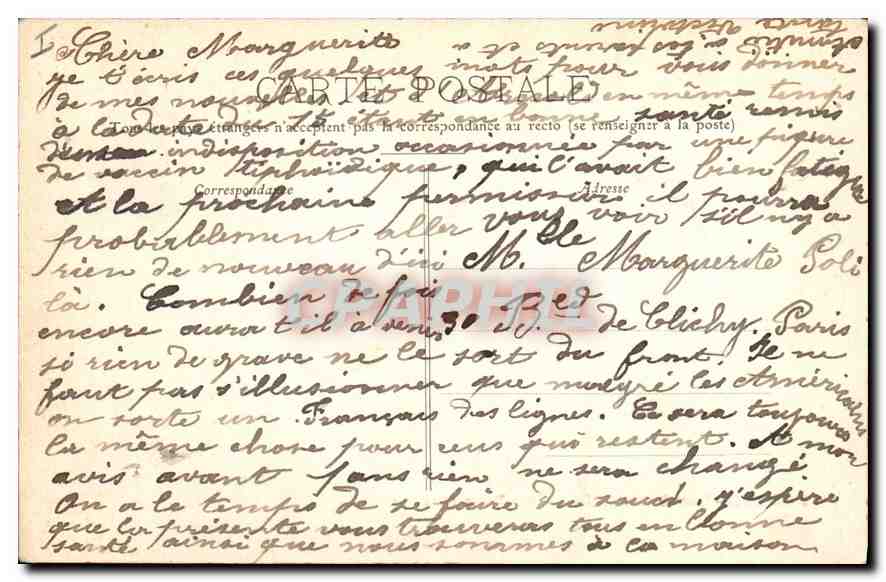 I
Chère Marguerite
je t'écris ces quelques mots pour vous donner
CARTE POSTALE
de mes nouvelles et en même temps
Tous les pays étrangers n'acceptent pas la correspondance au recto (se renseigner à la poste)
à la date du étant en bonne santé remis
indisposition occasionnée par une piqûre
de vaccin tiphoïdique, qui l'avait bien fatigué
Correspondance
Adresse
A la prochaine permission il pourra
probablement aller vous voir s'il n'y a
rien de nouveau d'ici
Mlle Marguerite Poli
là. Combien de fois
CPAPHIL
30 Bed de Clichy. Paris
encore aura t'il à venir
si rien de grave ne le sort du front. Il ne
faut pas s'illusionner que malgré les Américains
on sorte un Français des lignes. Ce sera toujours
la même chose pour ceux qui restent. A mon
avis avant rien ne sera changé
On a le temps de se faire du souci. j'espère
que la présente vous trouveras tous en bonne
santé ainsi que nous sommes à la maison